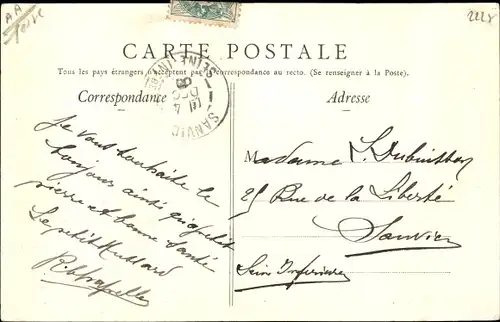 AA
2228
CARTE POSTALE
Tous les pays étrangers n'acceptent pas la correspondance au recto. (Se renseigner à la Poste).
Correspondance
Adresse
SANVIC
SEINE INF
4
DEC
09
Je vous souhaite le
bonjour ainsi que petit
pierre et bonne santé
Le petit
R. Chapelle
Madame L. Dubuisson
25 Rue de la Liberté
Sanvic
Seine Inférieure